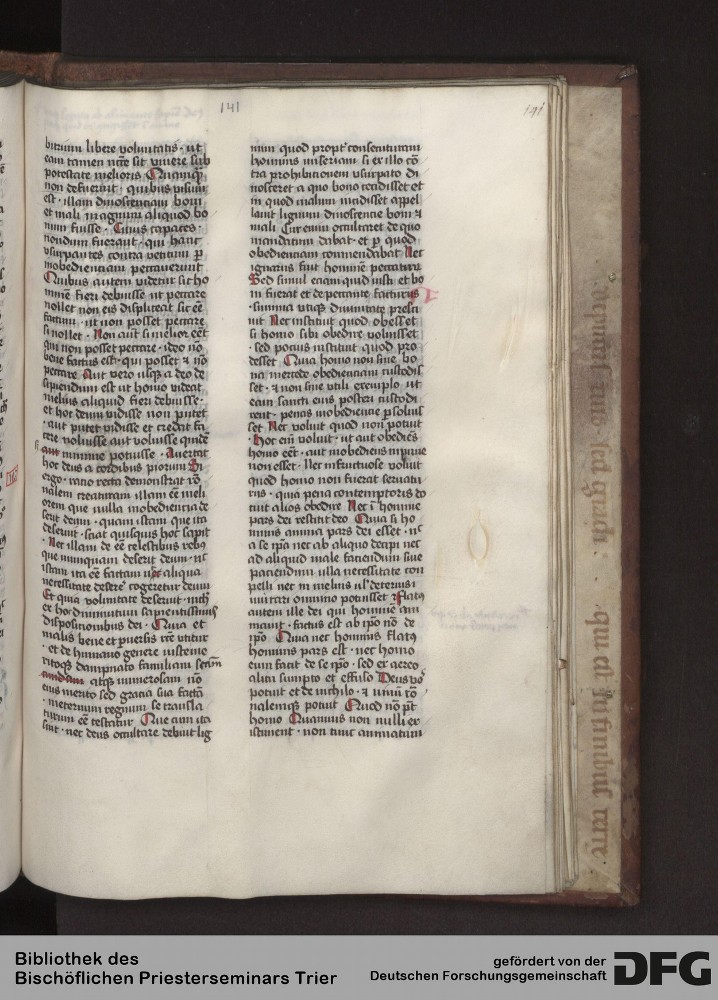 141
141
bitrium libere voluntatis · ut
eam tamen nccē sit vivere sub
potestate melioris Quamqȝ
non defuerint · quibus visum
est · illam dinoscentiam boni
et mali magnum aliquod bo
num fuisse · Cuius capaces ·
nondum fuerant · qui hanc
usurpantes contra vetitum p
inobedientiam peccaverunt
Quibus autem videtur sic ho
minē fieri debuisse ut peccare
nollet non eis displiceat sic eē
factum · ut non posset peccare
si nollet · Non aūt si melior eēt
qui non posset peccare · ideo nō
bene factus est · qui posset ⁊ nō
peccare Aut vero usqȝ a deo de
sipiendum est ut homo videat
melius aliquid fieri debuisse ·
et hoc deum vidisse non putet
· aut putet vidisse et credat fa
cere voluisse aut voluisse quidē
aut minime potuisse · Avertat
hoc deus a cordibus piorum Si
ergo · ratio recta demonstrat rō
nalem creaturam illam eē meli
orem que nulla inobediencia de
serit deum · quam istam que ita
deseruit · sciat quisquis hoc sapit
· Nec illam de eē celestibus rebȝ
que nunquam deserit deum · nc
istam ita eē factam ut aliqua
necessitate deserē cogeretur deum
Et quia voluntate deseruit · nich
ex hoc diminutum sapientissimis
dispositionibus dei · Quia et
malis bene et pversis rcē utitur
· et de humano genere iusteme
ritoqȝ dampnato familiam secum
atqȝ numerosam nō
eius merito sed gracia sua factā
· in eternum regnum se transla
turum eē testatur Que cum ita
sint · nec deus occultare debuit lig
num quod propt consecuturam
hominis miseriam si ex illo cō
tra prohibitionem usurpato di
nosceret a quo bono recidisset et
in quod malum incidisset appel
lavit lignum dinoscentie boni ⁊
mali Cur enim occultaret de quo
mandatum dabat · et p quod
obedienciam commendabat Nec
ignarus fuit hominē peccaturū
Sed simul etiam quid iusti et bo
ni fuerat et de peccante facturus
· summa utiqȝ divinitate presci
vit Nec instituit quod obesset
si homo sibi obedire voluisset
· sed pocius instituit quod pro
desset Quia homo non sine bo
na mercede obedienciam custodis
set · ⁊ non sine utili exemplo ut
eam sancti eius posteri custodi
rent · penas inobedientie psoluis
set Nec voluit quod non potuit
· Hoc eñ voluit · ut aut obediēs
homo eēt · aut inobediens impune
non esset · Nec infructuose voluit
quod homo non fuerat servatu
rus · quia pena contemptoris do
cuit alios obedire Nec ī homine
pars dei restitit deo Quia si ho
minis anima pars dei esset · nc
a se ipa nec ab aliquo decipi nec
ad aliquid male faciendum sive
paciendum ulla necessitate com
pelli nec in melius ul deterius
mutari omnino potuisset Flatȝ
autem ille dei qui hominē ani
mavit · factus est ab ipō nō de
ipō Quia nec hominis flatȝ
hominis pars est · nec homo
eum facit de se ipō · sed ex aereo
alitu sumpto et effuso Deus vo
potuit et de nichilo · ⁊ vivum rō
nalemqȝ potuit Quod nō pōt
homo Quamvis non nulli ex
istiment · non tunc animatum
apud nos · sed
qui di in finibus terre
Bibliothek des
Bischöflichen Priesterseminars Trier
gefördert von der
Deutschen Forschungsgemeinschaft
DFG